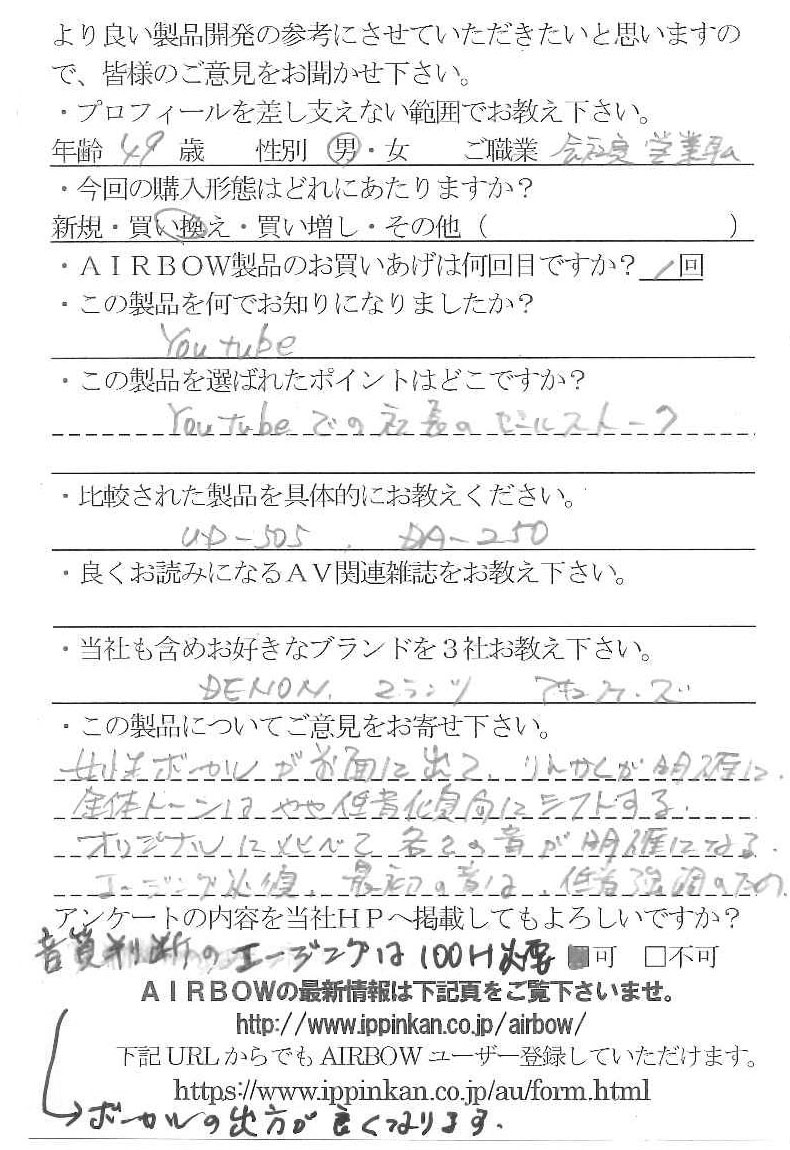 より良い製品開発の参考にさせていただきたいと思いますの
で、皆様のご意見をお聞かせ下さい。
・プロフィールを差し支えない範囲でお教え下さい。
年齢 49 歳 性別 男・女 ご職業 会社員 営業職
・今回の購入形態はどれにあたりますか?
新規・買い換え・買い増し・その他( )
・AIRBOW製品のお買いあげは何回目ですか? 1回
・この製品を何でお知りになりましたか?
Youtube
・この製品を選ばれたポイントはどこですか?
Youtubeでの社長のセールストーク
・比較された製品を具体的にお教えください。
UD-505、DA-250
・良くお読みになるAV関連雑誌をお教え下さい。
・当社も含めお好きなブランドを3社お教え下さい。
DENON、マランツ アキュフェーズ
・この製品についてご意見をお寄せ下さい。
女性ボーカルが前面に出て、りんかくが明確に、
全体トーンはやや低音化傾向にシフトする。
オリジナルに比べて各々の音が明確になる。
エージング必須、最初の音は、低音強調のため
アンケートの内容を当社HPへ掲載してもよろしいですか?
音質判断のエージングは100H必要 ■可 □不可
AIRBOWの最新情報は下記頁をご覧下さいませ。
http://www.ippinkan.co.jp/airbow/
下記URLからでもAIRBOWユーザー登録していただけます。
https://www.ippinkan.co.jp/au/form.html
ボーカルの出方が良くなります。